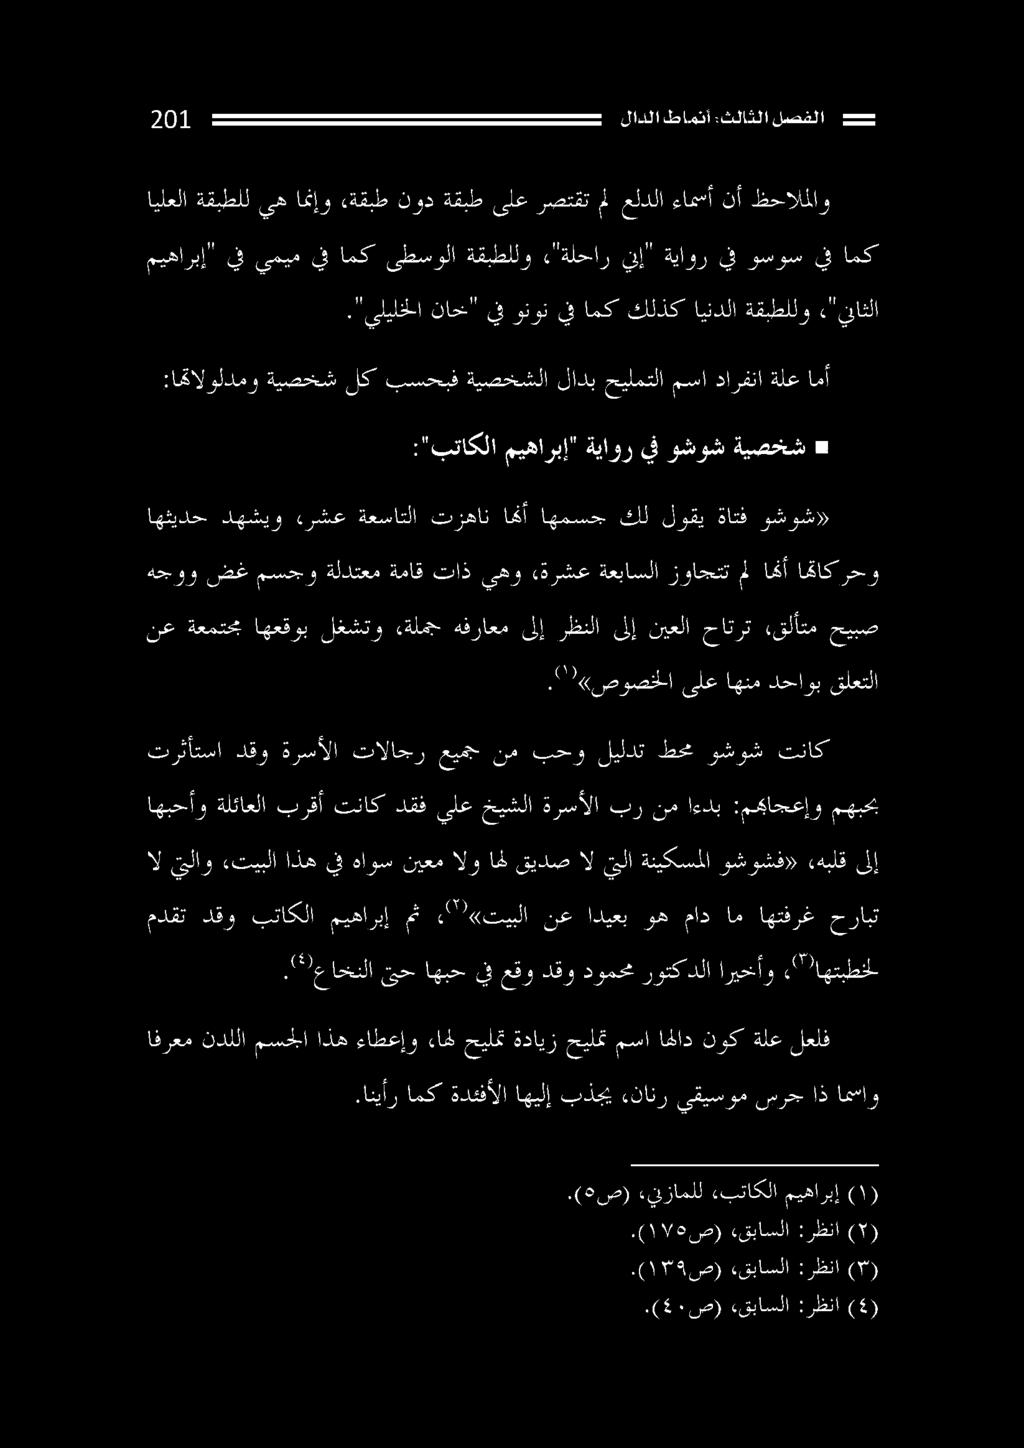 الفصل الثالث: أنماط الدال 201
والملاحظ أن أسماء الدلع لم تقتصر على طبقة دون طبقة، وإنما هي للطبقة العليا
كما في سوسو في رواية "إني راحلة"، وللطبقة الوسطى كما في ميمي في "إبراهيم
الثاني"، وللطبقة الدنيا كذلك كما في نونو في "خان الخليلي".
أما علة انفراد اسم التمليح بدال الشخصية فبحسب كل شخصية ومدلولاتها:
▪ شخصية شوشو في رواية "إبراهيم الكاتب":
«شوشو فتاة يقول لك جسمها أنها ناهزت التاسعة عشر، ويشهد حديثها
وحركاتها أنها لم تتجاوز السابعة عشرة، وهي ذات قامة معتدلة وجسم غض ووجه
صبيح متألق، ترتاح العين إلى النظر إلى معارفه جملة، وتشغل بوقعها مجتمعة عن
التعلق بواحد منها على الخصوص»(١).
كانت شوشو محط تدليل وحب من جميع رجالات الأسرة وقد استأثرت
بحبهم وإعجابهم: بدءا من رب الأسرة الشيخ علي فقد كانت أقرب العائلة وأحبها
إلى قلبه، «فشوشو المسكينة التي لا صديق لها ولا معين سواه في هذا البيت، والتي لا
تبارح غرفتها ما دام هو بعيدا عن البيت»(٢)، ثم إبراهيم الكاتب وقد تقدم
لخطبتها(٣)، وأخيرا الدكتور محمود وقد وقع في حبها حتى النخاع(٤).
فلعل علة كون دالها اسم تمليح زيادة تمليح لها، وإعطاء هذا الجسم اللدن معرفا
واسما ذا جرس موسيقي رنان، يجذب إليها الأفئدة كما رأينا.
(١) إبراهيم الكاتب، للمازني، (ص٥).
(٢) انظر: السابق، (ص١٧٥).
(٣) انظر: السابق، (ص١٣٩).
(٤) انظر: السابق، (ص٤٠).